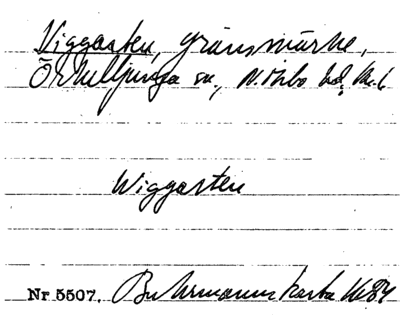 Viggasten, gränsmärke,
Örkelljunga sn, N. Åsbo hd, M. l.
Wiggasten
Nr 5507. Buhrmanns karta 1684